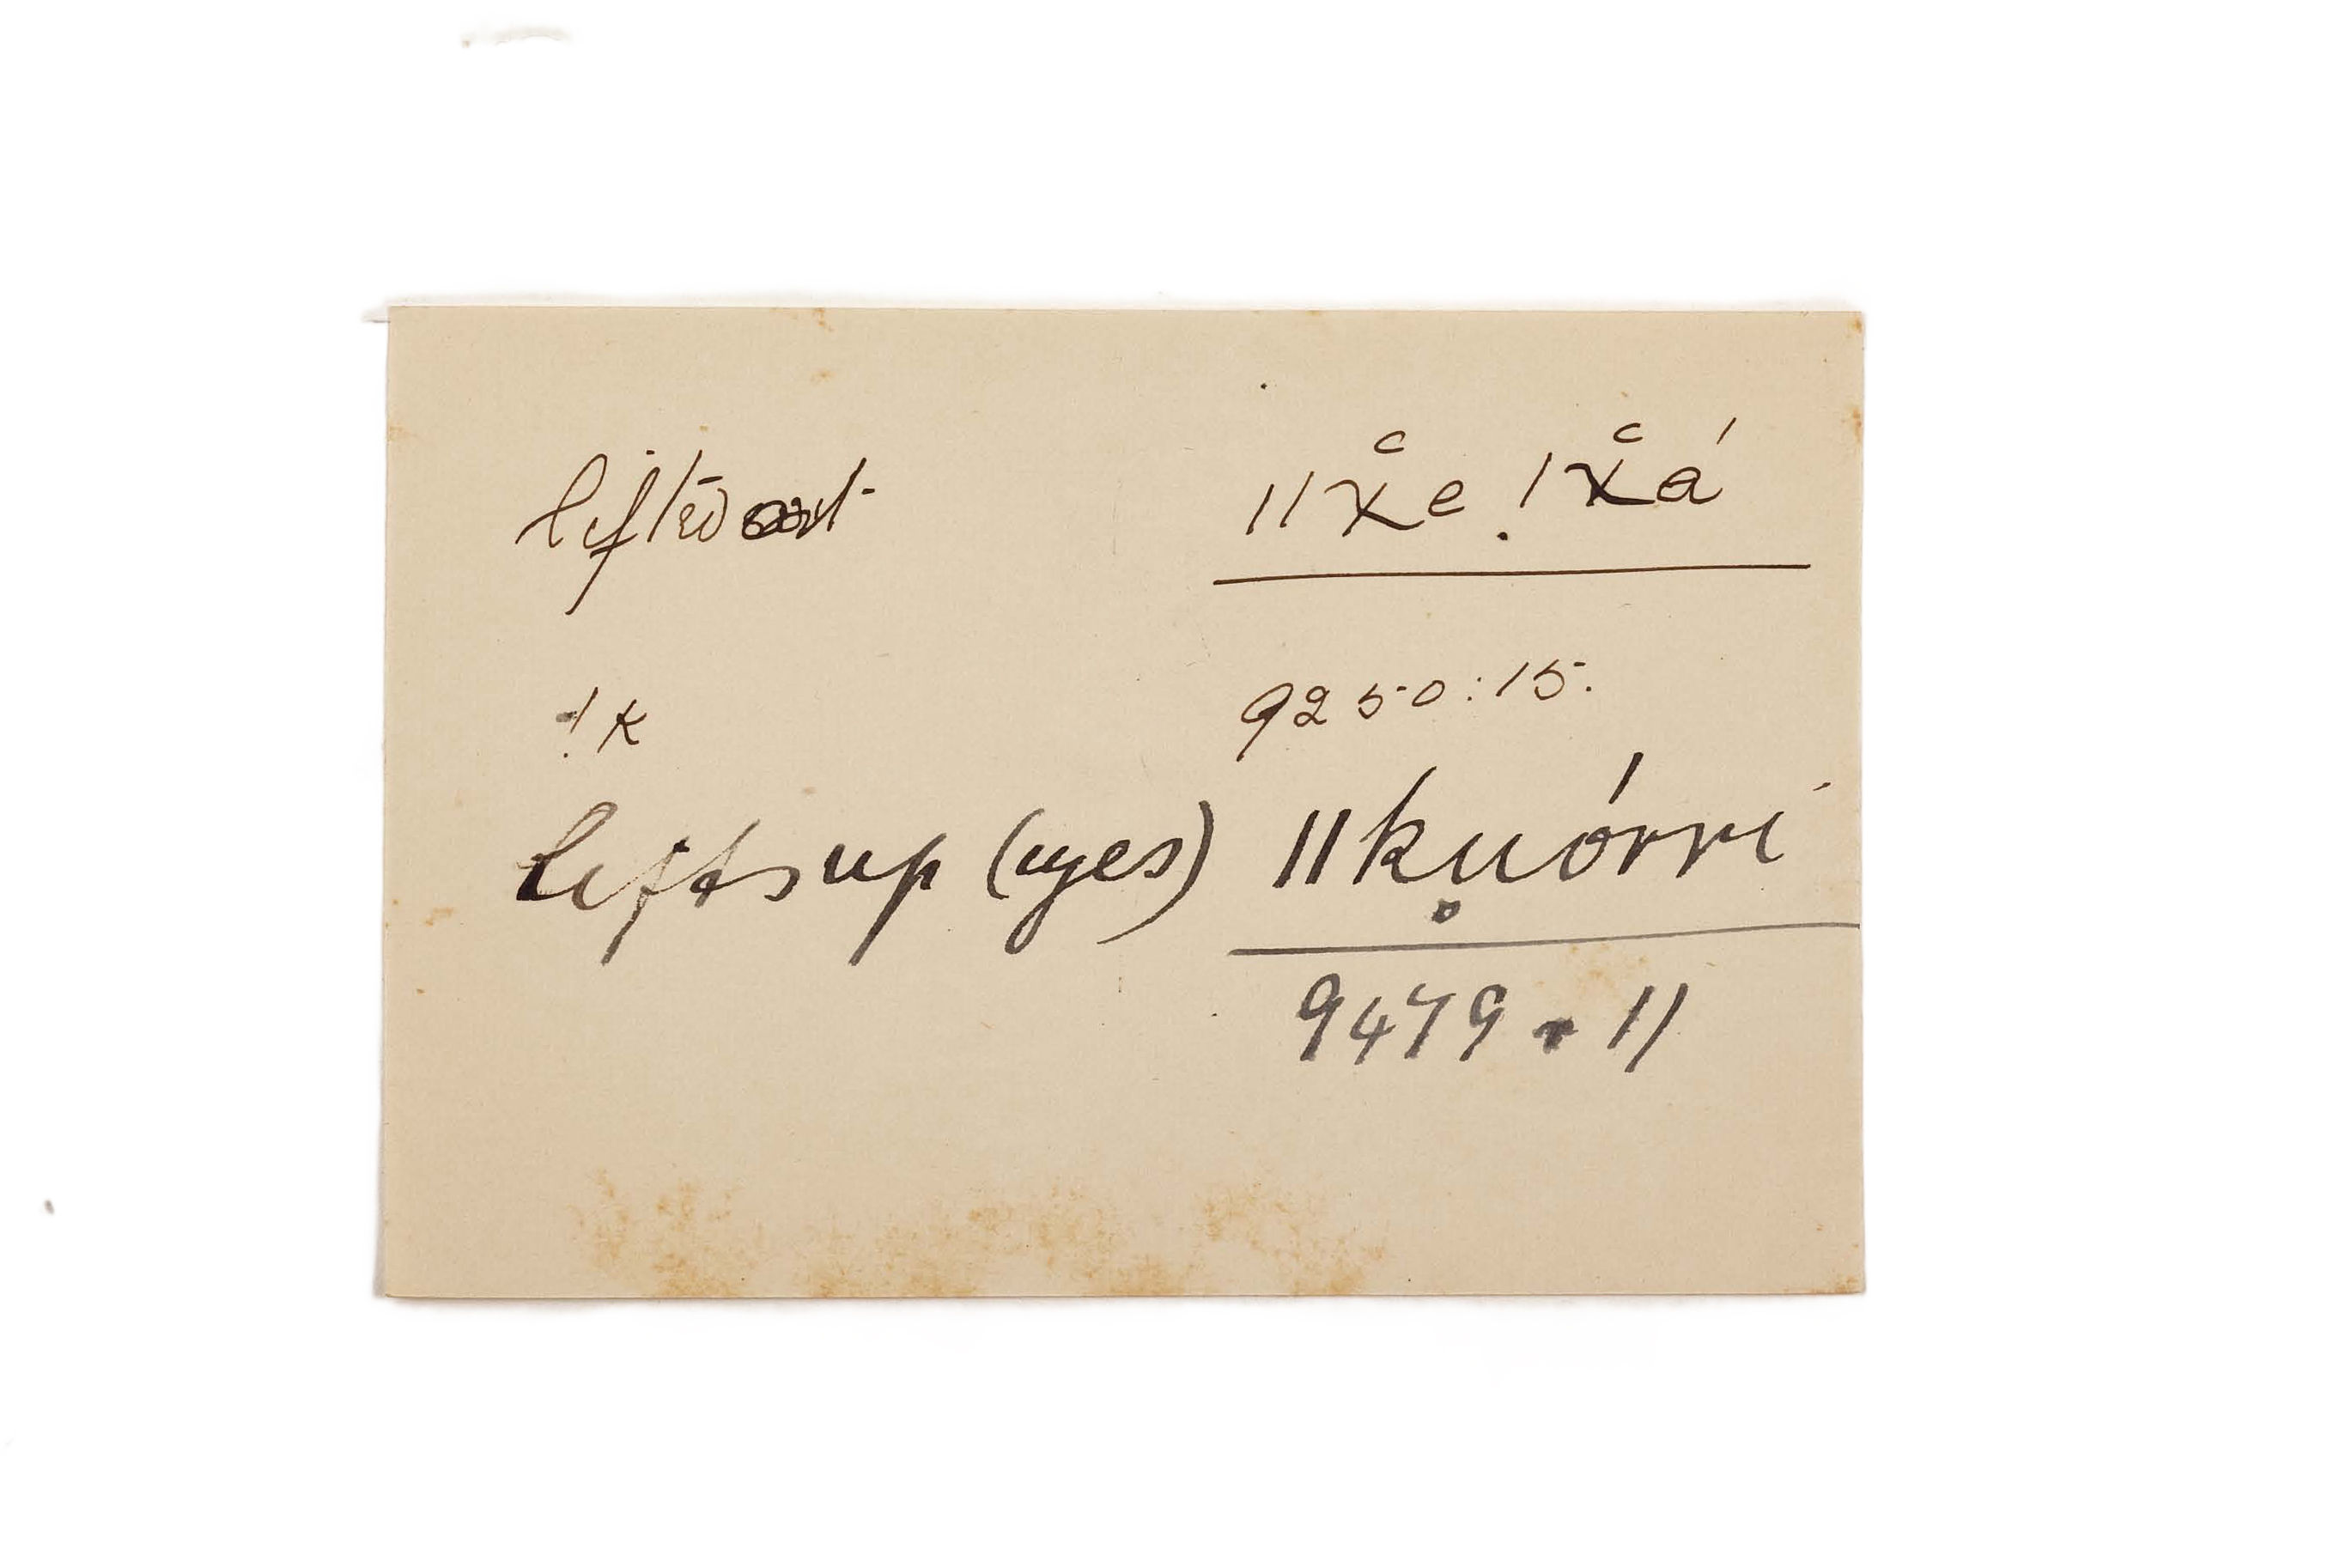 lifted out ǁχ͑e !χ͑á
!k 9250:15.
lifts up (eyes) ǁkụórri
9479 . 11